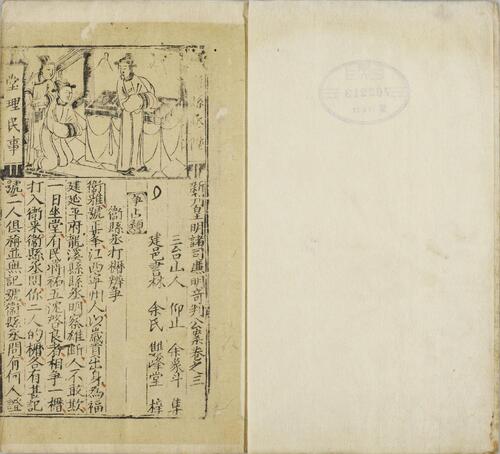 堂理民事
新刻皇明諸司廉明奇判公案卷之三
三台山人 仰止 余象斗 集
建邑書林 余氏 雙峰堂 梓
爭占類
衛縣丞打櫃辨爭
衛雅號正峯江西寧州人以歲貢出身為福
建延平府龍溪縣縣丞明察雄斷人不敢欺
一日坐堂有民蔣祐五沈啓良者相爭一櫃
打入衙來衛縣丞問你二人的櫃各有甚記
號二人俱稱並無記號衛縣丞問有何人證